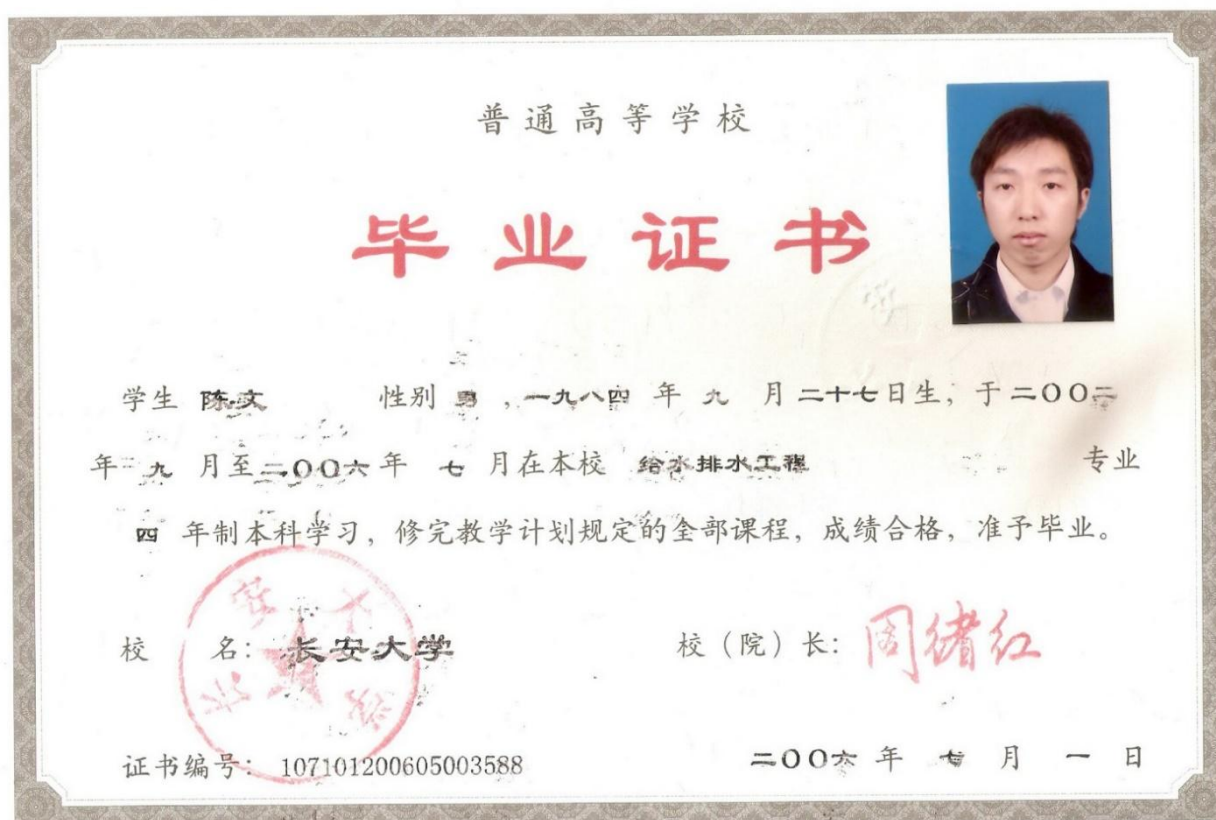 普通高等学校
毕业证书
学生 陈文 性别 男 ,一九八四 年 九 月二十七日生, 于二〇〇二
年 九 月至二〇〇六年 七 月在本校 给水排水工程 专业
四 年制本科学习, 修完教学计划规定的全部课程, 成绩合格, 准予毕业。
校 名: 长安大学 校 (院) 长: 周绪红
长安大学
证书编号: 107101200605003588 二〇〇六 年 七 月 一 日